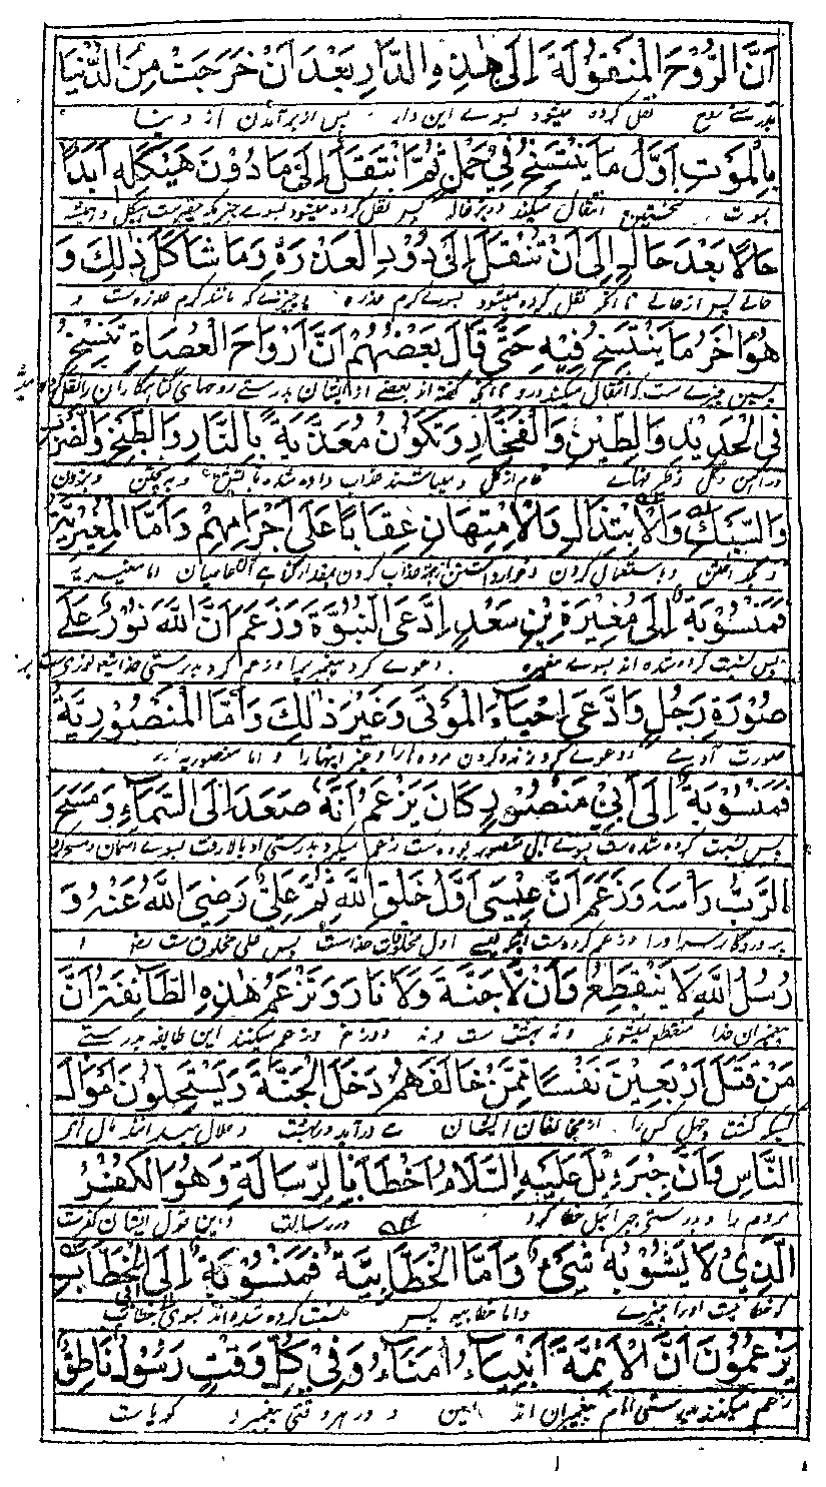 اَنَّ الرُّوْحَ الْمَنْقُوْلَةَ اِلٰى هٰذِهِ الدَّارِ بَعْدَ اَنْ خَرَجَتْ مِنَ الدُّنْيَا
بدرستے روح نقل کرده میشود بسوے این دار پس از برآمدن از دنیا
بِالْمَوْتِ اَوَّلُ مَا يَنْتَسِخُ فِيْ حَمَلٍ ثُمَّ انْتَقَلَ اِلٰى مَا دُوْنَ هَيْكَلِهٖ اَبَدًا
بموت نخستین انتقال میکند در بزغاله پس نقل کرده میشود بسوے
حَالًا بَعْدَ حَالٍ اِلٰى اَنْ تُنْقَلَ اِلٰى دُوْدِ الْعَذِرَةِ وَمَا شَاكَلَ ذٰلِكَ وَ
حالے پس از حالے تا آنکه نقل کرده میشود بسوے کرم عذره یا چیزے که مانند کرم عذره ست و
هُوَ اٰخِرُ مَا يَنْتَسِخُ فِيْهِ حَتّٰى قَالَ بَعْضُهُمْ اَنَّ اَرْوَاحَ الْعُصَاةِ تَنْسَخُ
پسین چیزے ست که انتقال میکند درو تا آنکه گفته اند بعضے از ایشان بدرستے روحهای گناهگاران را نقل
فِي الْحَدِيْدِ وَالطِّيْنِ وَالْفَخَّارِ وَتَكُوْنُ مُعَذَّبَةً بِالنَّارِ وَالطَّبْخِ وَالضَّرْبِ
در آهن و گل خام از گل و میباشند عذاب داده شده بآتش و به پختن و بزدن
وَالسَّبْكِ وَالْاِبْتِذَالِ وَالْاِمْتِهَانِ عِقَابًا عَلٰى اَجْرَامِهِمْ وَاَمَّا الْمُغِيْرِيَّةُ
و استعمال کردن و خوار داشتن عذاب کردن اما مغیریه
فَمَنْسُوْبَةٌ اِلٰى مُغِيْرَةِ بْنِ سَعْدٍ اِدَّعَى النُّبُوَّةَ وَزَعَمَ اَنَّ اللّٰهَ نُوْرٌ عَلٰى
پس نسبت کرده شده اند بسوے مغیره دعوے کرد پیغمبری را و زعم کرد بدرستی خدا نوری ست بر
صُوْرَةِ رَجُلٍ وَادَّعٰى اِحْيَاءَ الْمَوْتٰى وَغَيْرَ ذٰلِكَ وَاَمَّا الْمَنْصُوْرِيَّةُ
صورت آدمے و دعوے کرد زنده کردن مرده ها را و جز اینها را و اما منصوریه
فَمَنْسُوْبَةٌ اِلٰى اَبِيْ مَنْصُوْرٍ كَانَ يَزْعَمُ اَنَّهٗ صَعَدَ اِلَى السَّمَاءِ وَمَسَحَ
پس نسبت کرده شده ست بسوے ابی منصور بوده ست زعم میکرد بدرستی او بالا رفت بسوے آسمان و
الرَّبُّ رَأْسَهٗ وَزَعَمَ اَنَّ عِيْسٰى اَوَّلُ خَلْقِ اللّٰهِ ثُمَّ عَلِيٌّ رَضِيَ اللّٰهُ عَنْهُ وَ
پروردگار سر او را و زعم کرده ست عیسے اول مخلوقات خداست پس علی مخلوق ست و
رُسُلُ اللّٰهِ لَا يَنْقَطِعُ وَاَنْ لَّا جَنَّةَ وَلَا نَارَ وَتَزْعَمُ هٰذِهِ الطَّائِفَةُ اَنَّ
پیغمبران خدا منقطع نمیشوند و نه بهشت ست و نه دوزخ و زعم میکنند این طایفه بدرستے
مَنْ قَتَلَ اَرْبَعِيْنَ نَفْسًا مِّمَّنْ خَالَفَهُمْ دَخَلَ الْجَنَّةَ وَيَسْتَحِلُّوْنَ اَمْوَالَ
کسیکه کشت چهل کس را از مخالفان ایشان درآید در بهشت و حلال میدانند مال های
النَّاسِ وَاَنَّ جِبْرَءِيْلَ عَلَيْهِ السَّلَامُ اَخْطَاَ بِالرِّسَالَةِ وَهُوَ الْكُفْرُ
مردم را و بدرستی جبرائیل خطا کرد در رسالت و این قول ایشان کفرست
الَّذِيْ لَا يَشُوْبُهٗ شَيْءٌ وَاَمَّا الْخَطَّابِيَّةُ فَمَنْسُوْبَةٌ اِلٰى اَبِى الْخَطَّابِ
اورا چیزے و اما خطابیه پس نسبت کرده شده اند بسوی ابی خطاب
يَزْعَمُوْنَ اَنَّ الْاَئِمَّةَ اَنْبِيَاءُ اُمَنَاءُ وَفِيْ كُلِّ وَقْتٍ رَسُوْلٌ نَاطِقٌ
زعم میکنند بدرستی امام پیغمبران اند امین و در هر وقتی پیغمبر گویاست